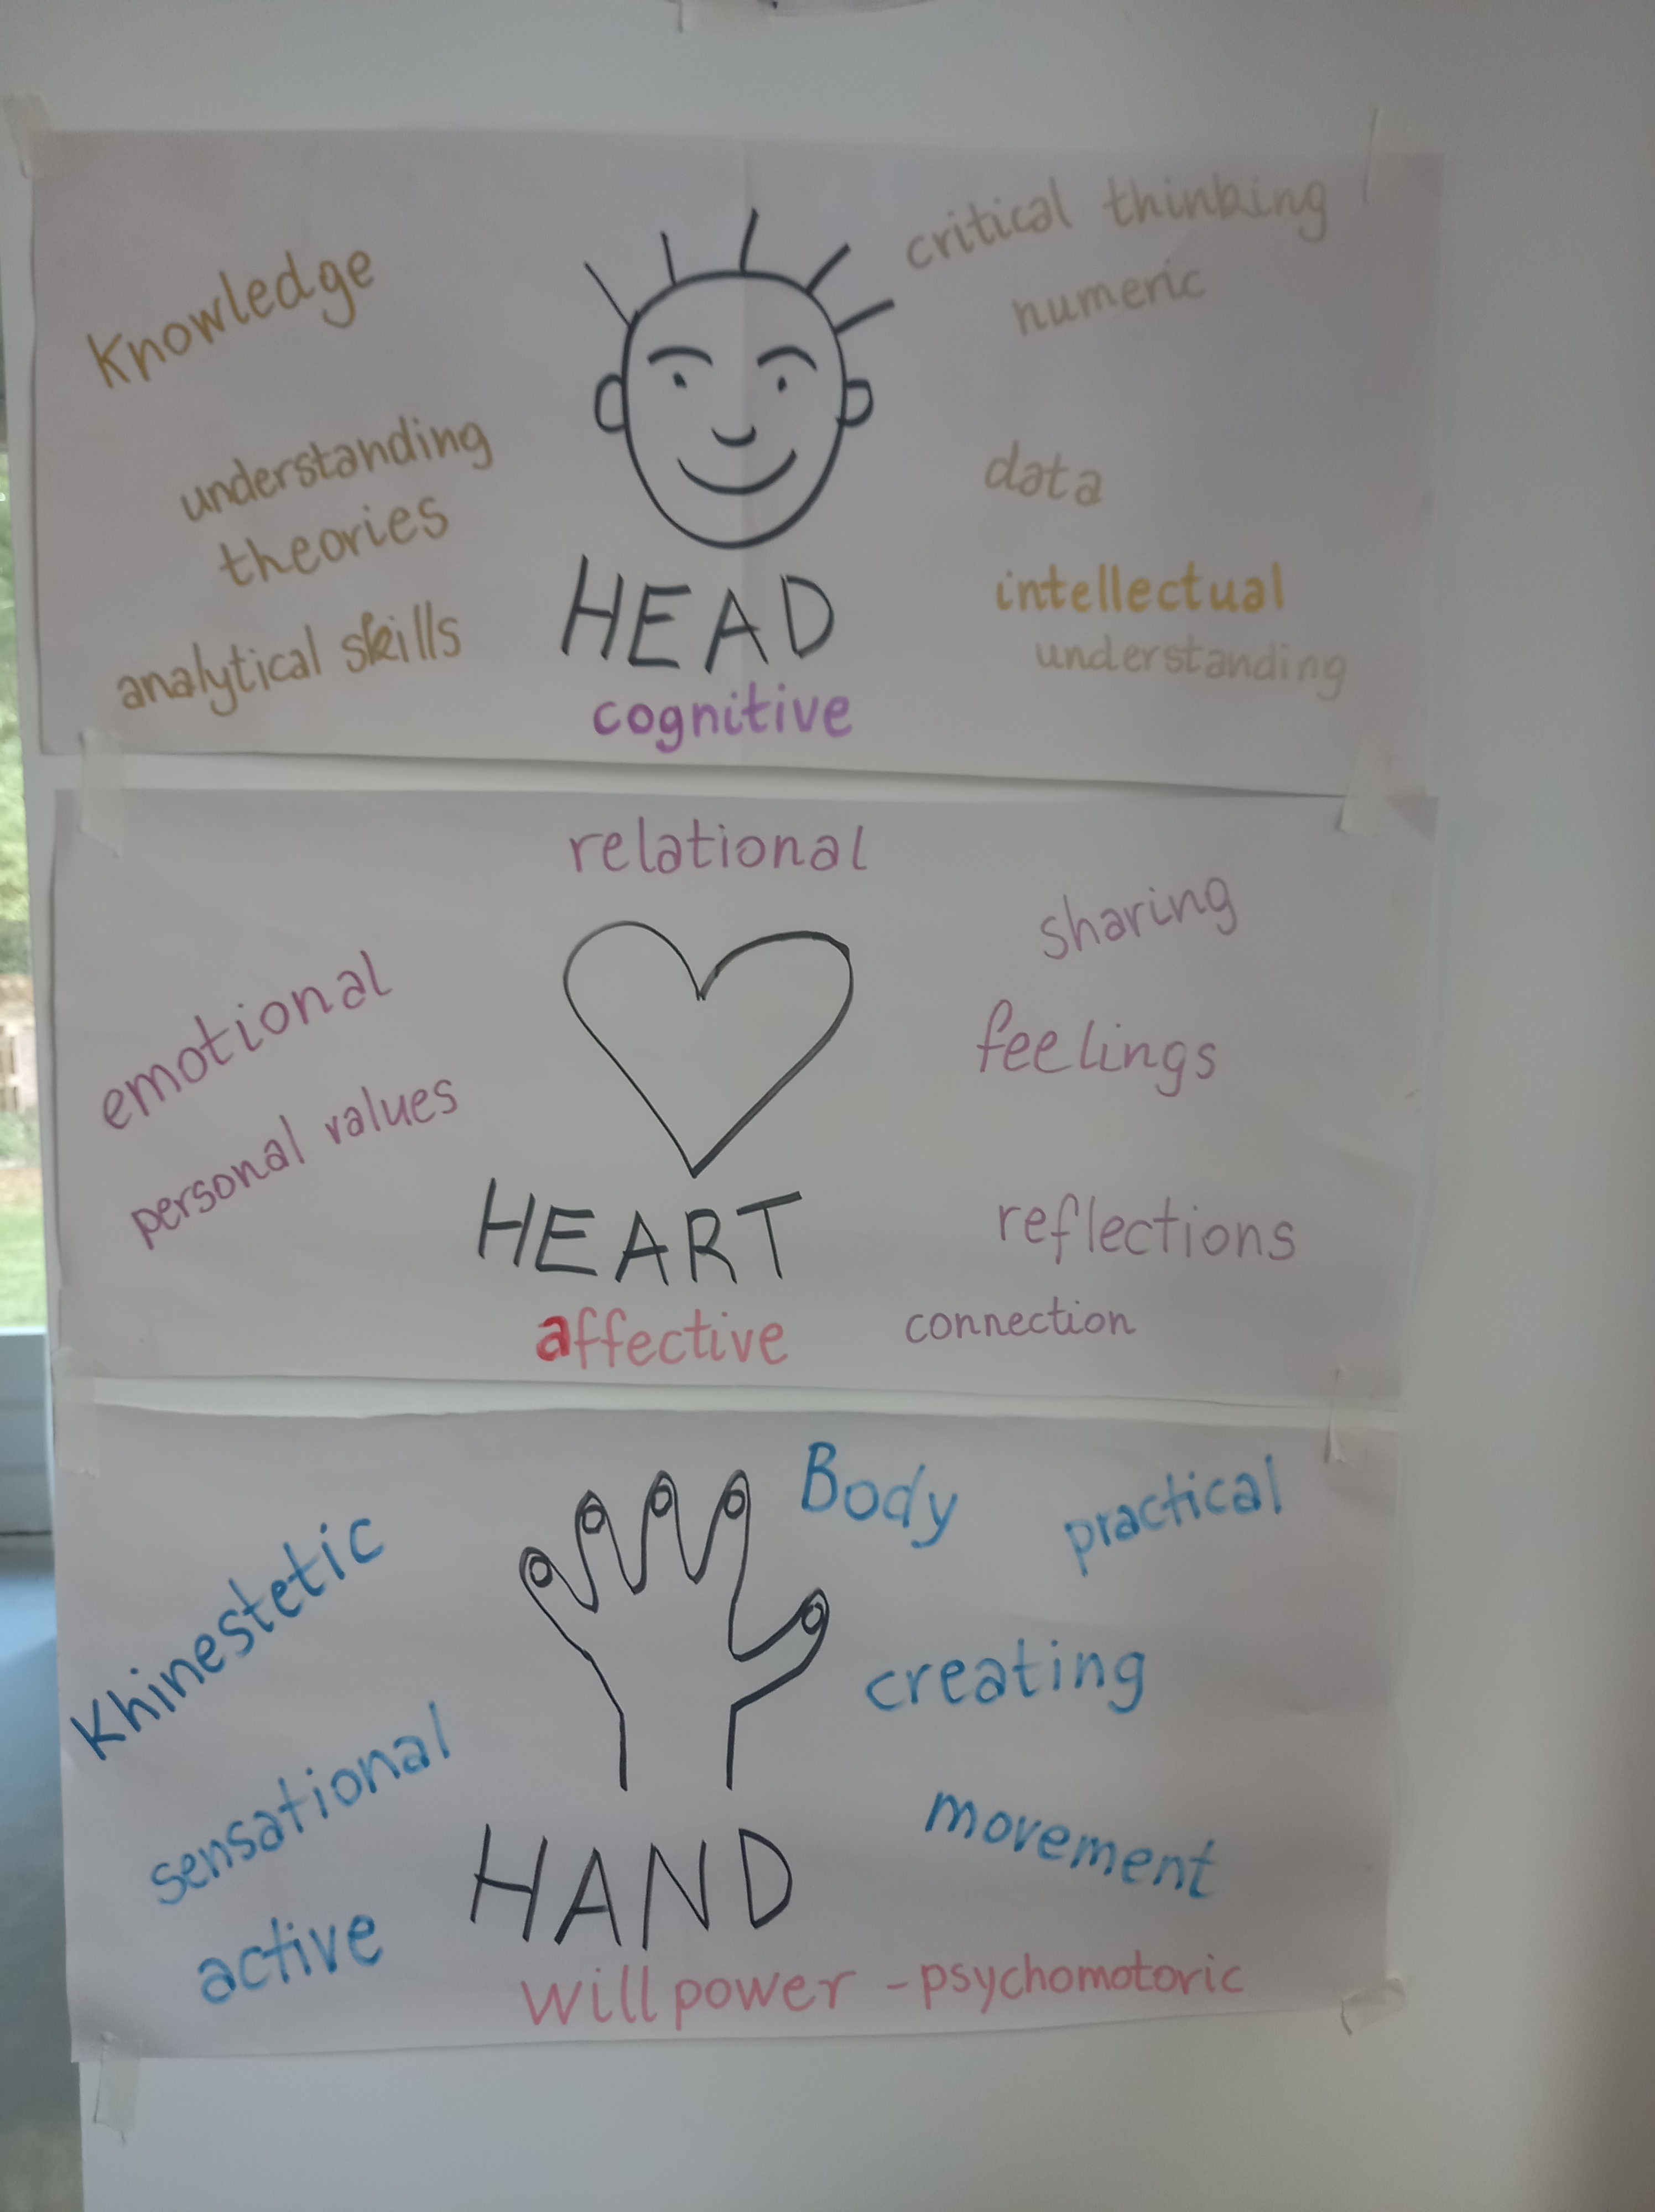 Knowledge
understanding
theories
analytical skills
critical thinking
numeric
data
intellectual
understanding
HEAD
cognitive
relational
emotional
personal values
sharing
feelings
reflections
connection
HEART
affective
Body
practical
Khinestetic
sensational
active
creating
movement
HAND
will power - psychomotoric